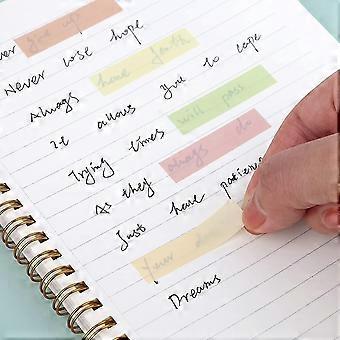 ver give up
Never lose hope
Always have faith
It allows you to cope
Trying times will pass
As they always do
Just have patience
Your
Dreams